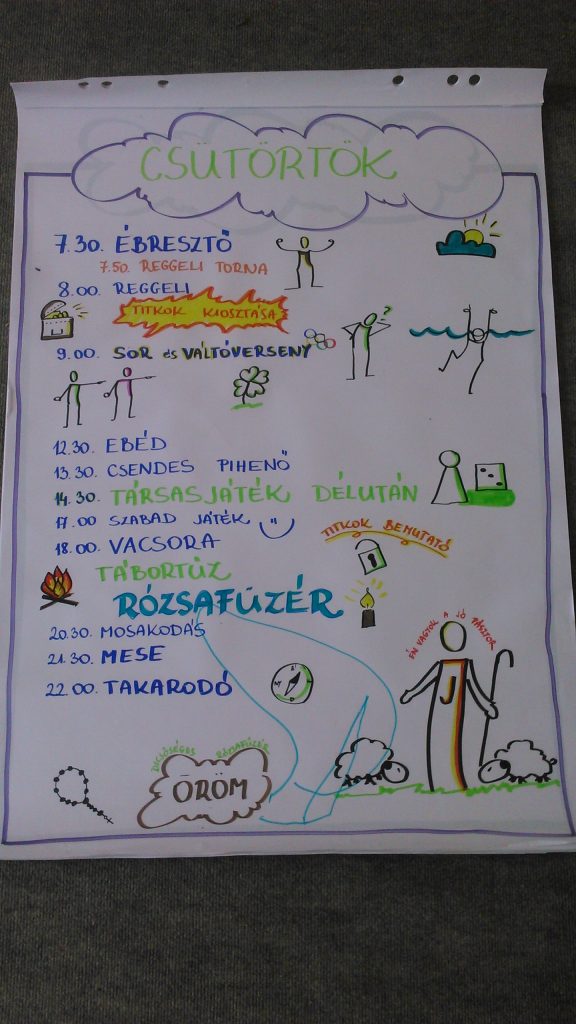 CSÜTÖRTÖK
7.30. ÉBRESZTŐ
7.50. REGGELI TORNA
8.00. REGGELI
TITKOK KIOSZTÁSA
9.00. SOR és VÁLTÓVERSENY
12.30. EBÉD
13.30. CSENDES PIHENŐ
14.30. TÁRSASJÁTÉK DÉLUTÁN
17.00 SZABAD JÁTÉK
TITKOK BEMUTATÓ
18.00. VACSORA
TÁBORTŰZ
RÓZSAFŰZÉR
20.30. MOSAKODÁS
21.30. MESE
22.00. TAKARODÓ
ÉN VAGYOK A JÓ PÁSZTOR
J
DICSŐSÉGES RÓZSAFŰZÉR
ÖRÖM